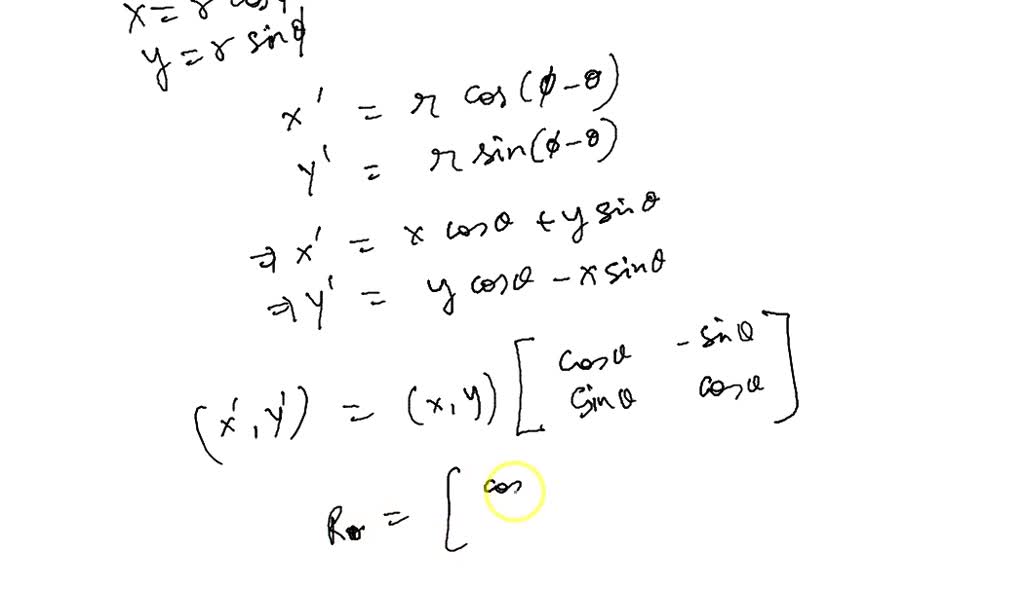 x = r cosϕ
y = r sinϕ
x' = r cos(ϕ-θ)
y' = r sin(ϕ-θ)
⇒ x' = x cosθ + y sinθ
⇒ y' = y cosθ - x sinθ
(x', y') = (x, y) [ cosθ -sinθ
sinθ cosθ ]
R = [ cos